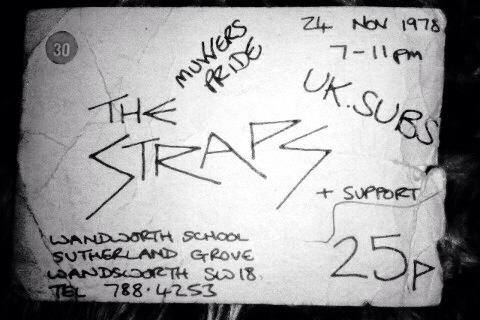 30
24 NOV 1978
7-11PM
MUVVERS
PRIDE
UK.SUBS
THE
STRAPS
+ SUPPORT
25p
WANDWORTH SCHOOL
SUTHERLAND GROVE
WANDSWORTH SW18.
TEL 788.4253